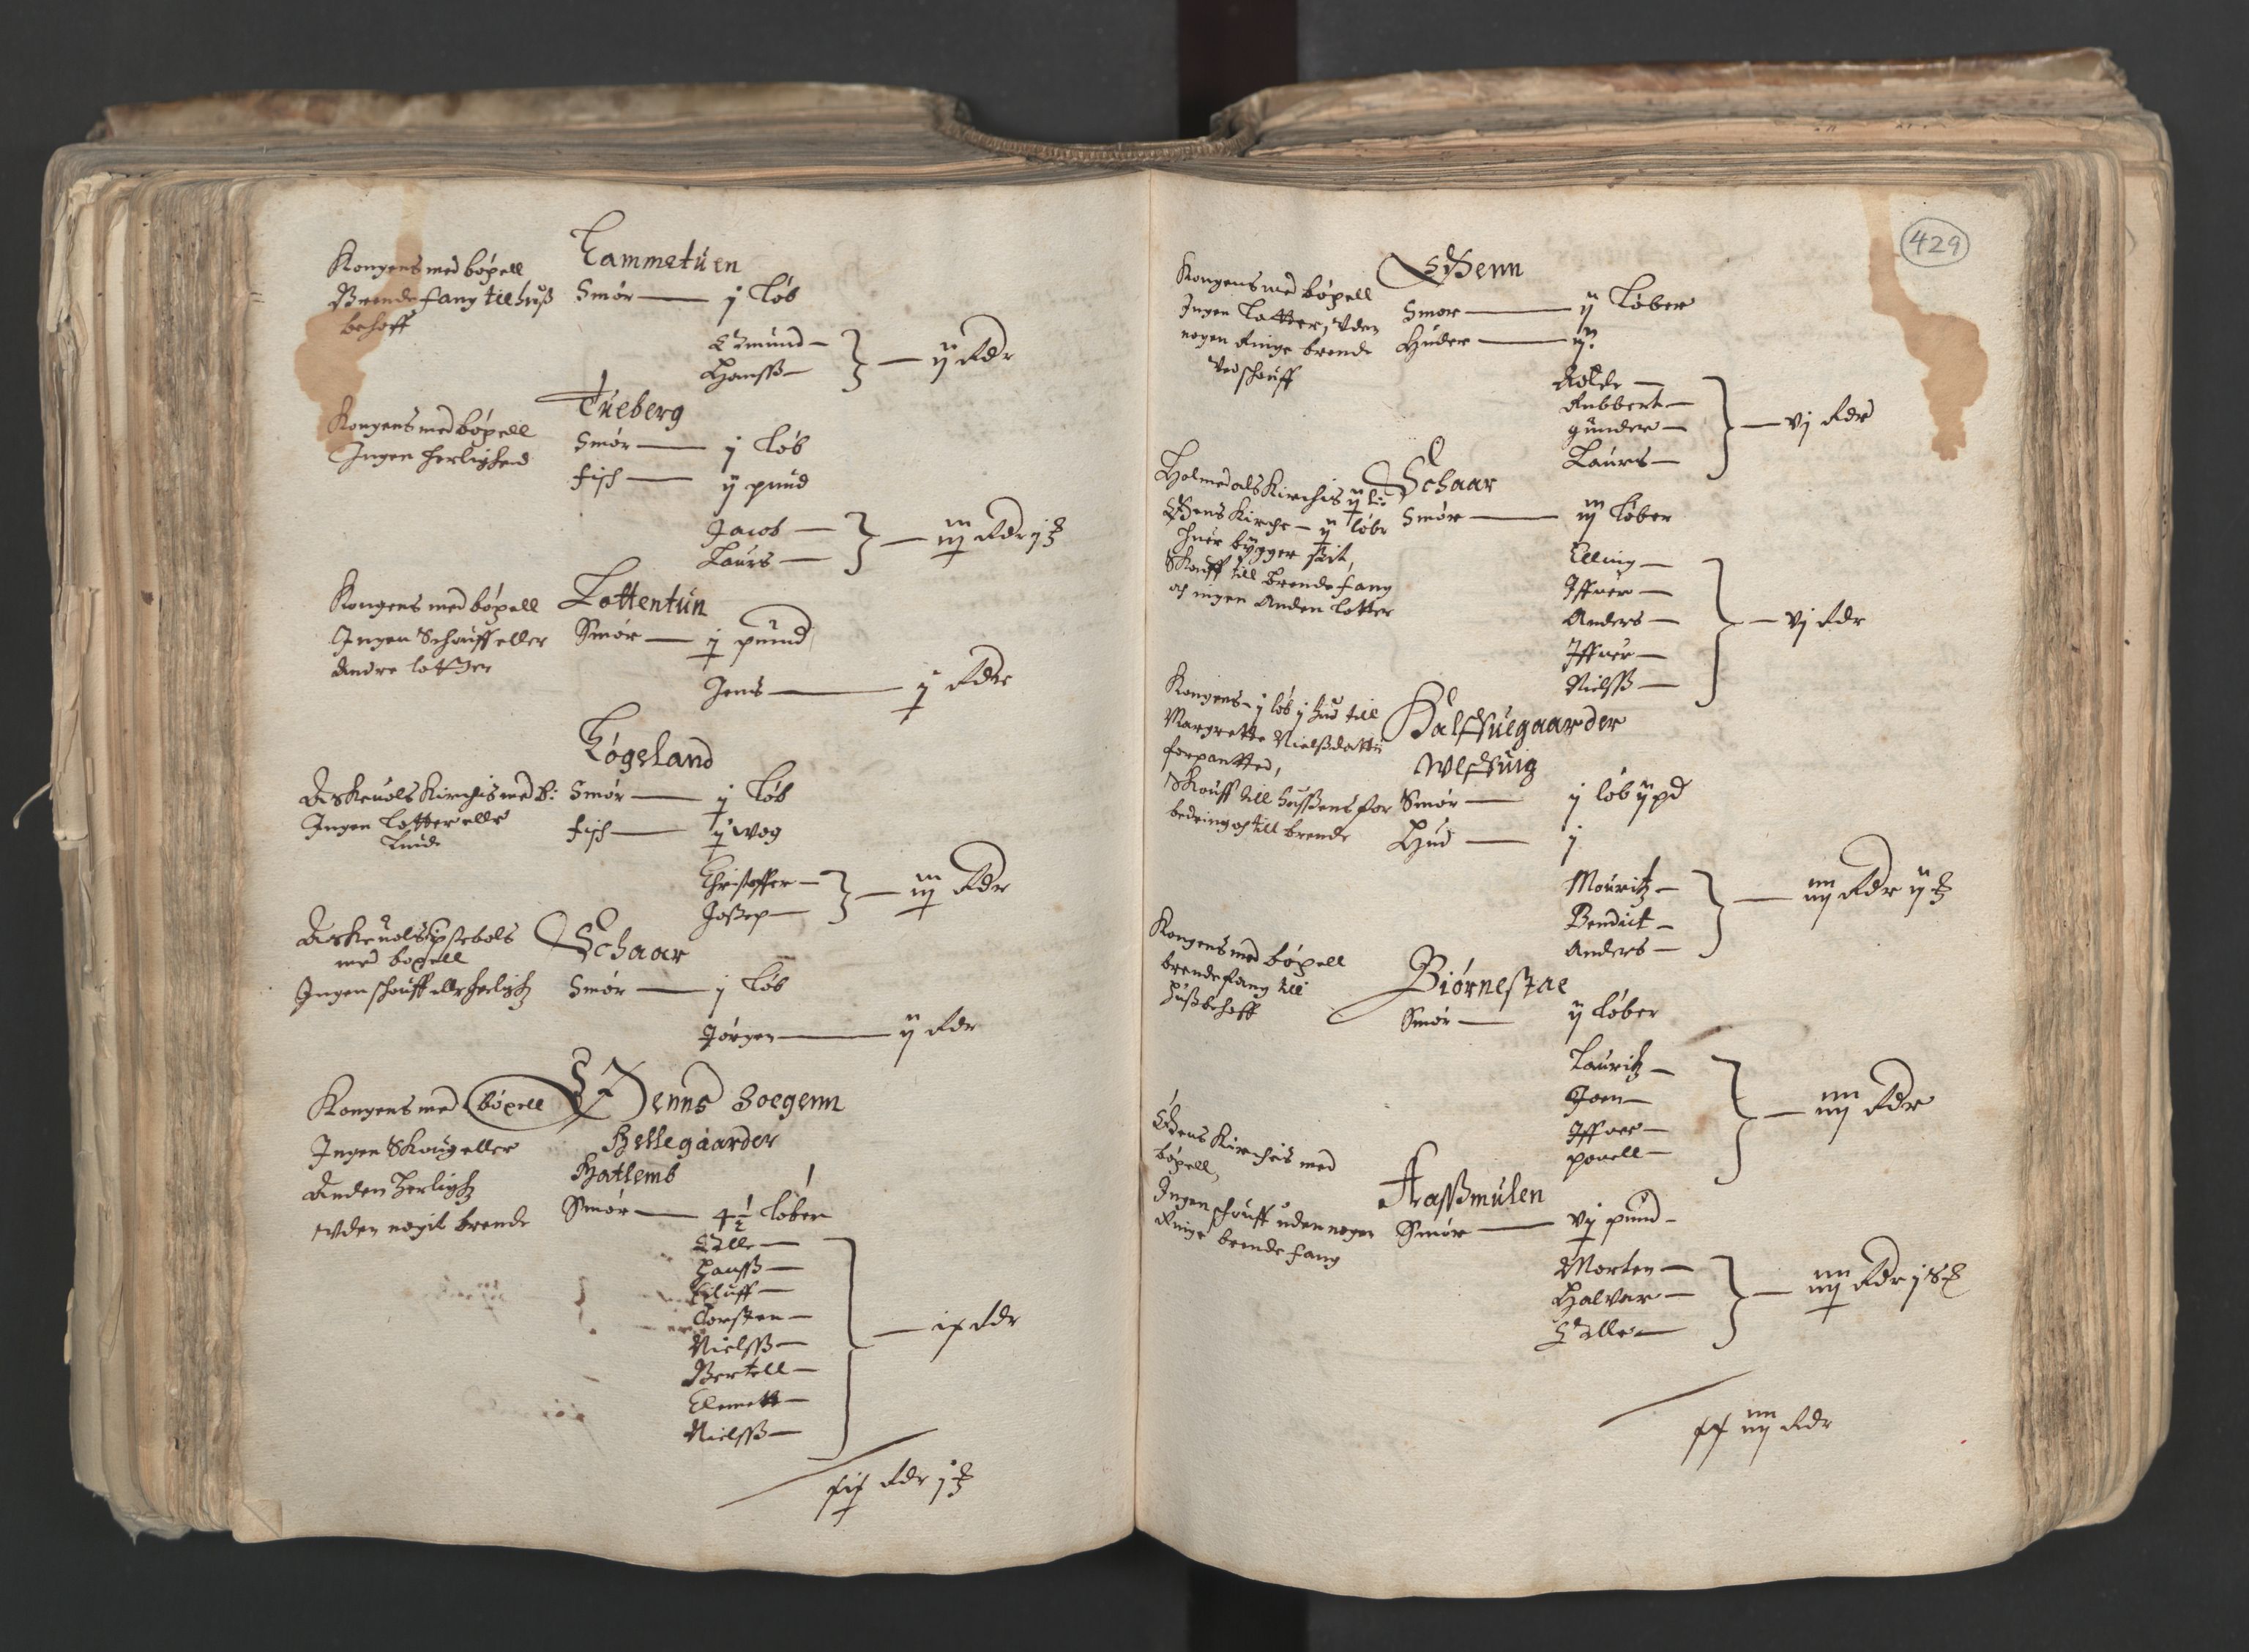 Kongens med bøxell
Brende fang till huß
behoff
Tammetuen
Smør — j Løb
Ammund —
Hanß —
— ij Rdr
Kongens med bøxell
Ingen herlighed
Tueberg
Smør — j Løb
fisk — ij pund
Jacob —
Laurs —
— iij Rdr j
Kongens med bøxell
Ingen Schouff eller
Andre lotter
Lottentun
Smør — j pund
Jens — j Rdr
Køgeland
Askeuols Kirchis med b:
Ingen Lotter eller
Smør — j Løb
fisk — j wog
Christoffer —
Joßep —
— iij Rdr
Askeuols
med boxell
Ingen schouff eller herligh
Schaar
Smør — j Løb
Jørgen — ij Rdr
Kongens med bøxell
Ingen Skoug eller
Anden herligh
vden nogit brende
Soegenn
Hellegaarder
Hatlemb
Smør — 4½ Løber
Hanß —
Eluff —
Torsten —
Nielß —
Bertell —
Clemett —
Nielß —
— ix Rdr
xix Rdr j
429
Kongens med bøxell
Ingen Lotter, vden
nogen Ringe brende
ved schouff
Ødenn
Smør — ij Løber
Huder — ij.
Rubbert —
gunder —
Laurs —
— vj Rdr
Holmedals Kirchis ij
Kirche — ij løbe
huer bygger sit,
Skouff till brende fang
och ingen Anden lotter
Schaar
Smør — iij Løber
Elling —
Iffuer —
Anders —
Iffuer —
Nielß —
— vj Rdr
Kongens — j løb j hud till
Margrette Nielßdatter
forpantted,
Skouff till hussens for
bedring och till brende
Smør — j løb ij pd
Hud — j
Mouritz —
Bendict —
Anders —
— iiij Rdr ij
Kongens med bøxell
brendefang till
hußbehoff
Biørnestae
Smør — ij Løber
Lauritz —
Joen —
Iffuer —
pouell —
— iiij Rdr
Kirchis med
bøxell,
Ingen schouff uden nogen
Ringe brende fang
Aaßmulen
Smør — vj pund —
Morten —
Halvar —
— iiij Rdr j
xx iiij Rdr